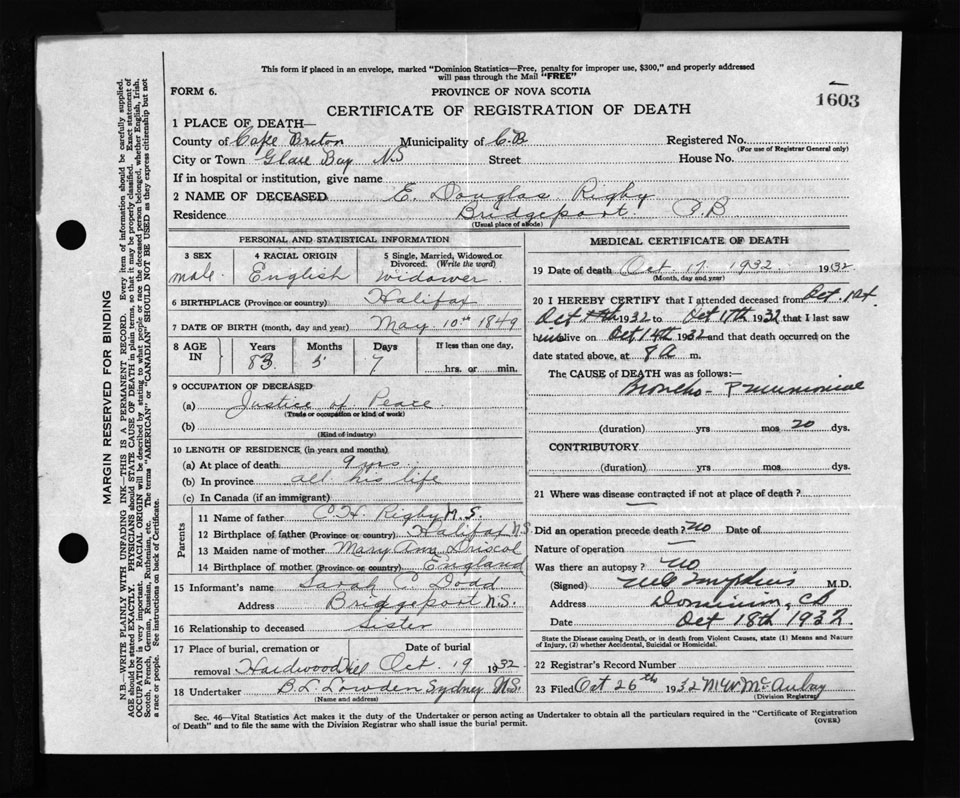 This form if placed in an envelope, marked "Dominion Statistics—Free, penalty for improper use, $300," and properly addressed
will pass through the Mail "FREE"
FORM 6.
PROVINCE OF NOVA SCOTIA
1603
CERTIFICATE OF REGISTRATION OF DEATH
1 PLACE OF DEATH—
County of Cape Breton Municipality of C.B Registered No.
(For use of Registrar General only)
City or Town Glace Bay N.S Street House No.
If in hospital or institution, give name
2 NAME OF DECEASED E. Douglas Rigby
Residence Bridgeport. C.B
(Usual place of abode)
PERSONAL AND STATISTICAL INFORMATION
3 SEX 4 RACIAL ORIGIN 5 Single, Married, Widowed or
Divorced. (Write the word)
male. English widower
6 BIRTHPLACE (Province or country) Halifax
7 DATE OF BIRTH (month, day and year) May 10th 1849
8 AGE IN Years Months Days If less than one day,
83 5 7 hrs. or min.
9 OCCUPATION OF DECEASED
(a) Justice of Peace.
(Trade or occupation or kind of work)
(b)
(Kind of industry)
10 LENGTH OF RESIDENCE (in years and months)
(a) At place of death 9 yrs.
(b) In province all his life
(c) In Canada (if an immigrant)
Parents
11 Name of father C.H. Rigby N.S.
12 Birthplace of father (Province or country) Halifax N.S.
13 Maiden name of mother Mary Ann Driscol
14 Birthplace of mother (Province or country) England
15 Informant's name Sarah C. Dodd
Address Bridgeport N.S.
16 Relationship to deceased Sister
17 Place of burial, cremation or Date of burial
removal Hardwood Hill Oct. 19 1932
18 Undertaker B.L Lowden Sydney N.S.
(Name and address)
MEDICAL CERTIFICATE OF DEATH
19 Date of death Oct. 17 1932. 1932
(Month, day and year)
20 I HEREBY CERTIFY that I attended deceased from Oct. 1st
Oct 1932 to Oct 17th 1932 that I last saw
him alive on Oct 14th 1932 and that death occurred on the
date stated above, at 8 a m.
The CAUSE of DEATH was as follows:
Broncho-Pneumoniae
(duration) yrs mos 20 dys.
CONTRIBUTORY
(duration) yrs mos dys.
21 Where was disease contracted if not at place of death?
Did an operation precede death? No Date of
Nature of operation
Was there an autopsy? No
(Signed) M.D.
Address Dominion, CB
Date Oct 18th 1932.
State the Disease causing Death, or in death from Violent Causes, state (1) Means and Nature
of Injury, (2) whether Accidental, Suicidal or Homicidal.
22 Registrar's Record Number
23 Filed Oct 26th 1932 McAulay
(Division Registrar)
Sec. 46—Vital Statistics Act makes it the duty of the Undertaker or person acting as Undertaker to obtain all the particulars required in the "Certificate of Registration
of Death" and to file the same with the Division Registrar who shall issue the burial permit.
(OVER)
MARGIN RESERVED FOR BINDING
N.B.—WRITE PLAINLY WITH UNFADING INK—THIS IS A PERMANENT RECORD. Every item of information should be carefully supplied.
AGE should be stated EXACTLY. PHYSICIANS should STATE CAUSE OF DEATH in plain terms, so that it may be properly classified. Exact statement of
OCCUPATION is very important. RACIAL ORIGIN will be described by stating to what people or race the deceased person belonged, whether English, Irish,
Scotch, French, German, Russian, Ruthenian, etc. The terms "AMERICAN" or "CANADIAN" SHOULD NOT BE USED as they express citizenship but not
a race or people. See instructions on back of Certificate.